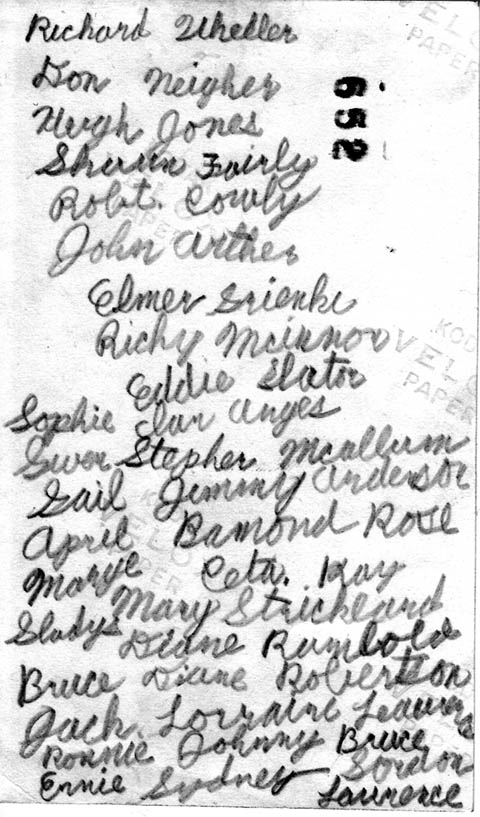 Richard Wheller
Don Neigher
Hugh Jones
Fairly
Robt. Cowly
John Arther
Elmer Srienke
Richy
Eddie Slator
Sophie Ian Anges
Stepher McCallum
Gail Jimmy Anderson
April Ramond Rose
Marye Ceta. Kay
Mary Strickland
Gladys Diane Rumbold
Bruce Diane Robertson
Jack Lorraine
Ronnie Johnny Bruce
Ernie Sydney Gordon
Laurence
652
KOD
VELO
PAPER